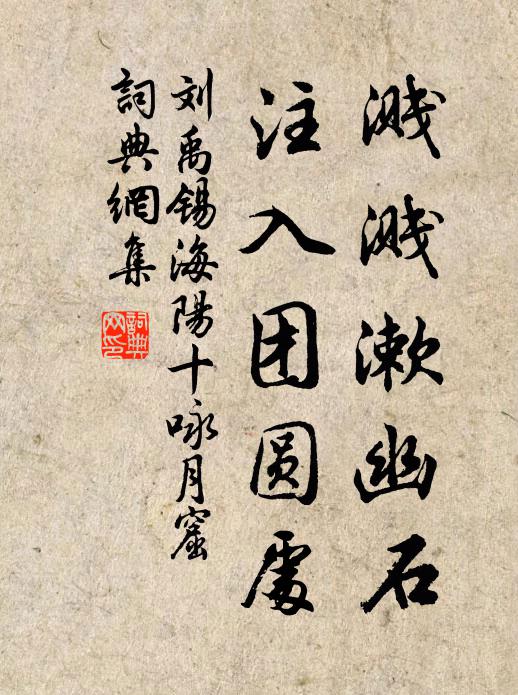 溅溅漱幽石
注入团圆處
刘禹锡海陽十咏月窟
詞典網集
詞典網印